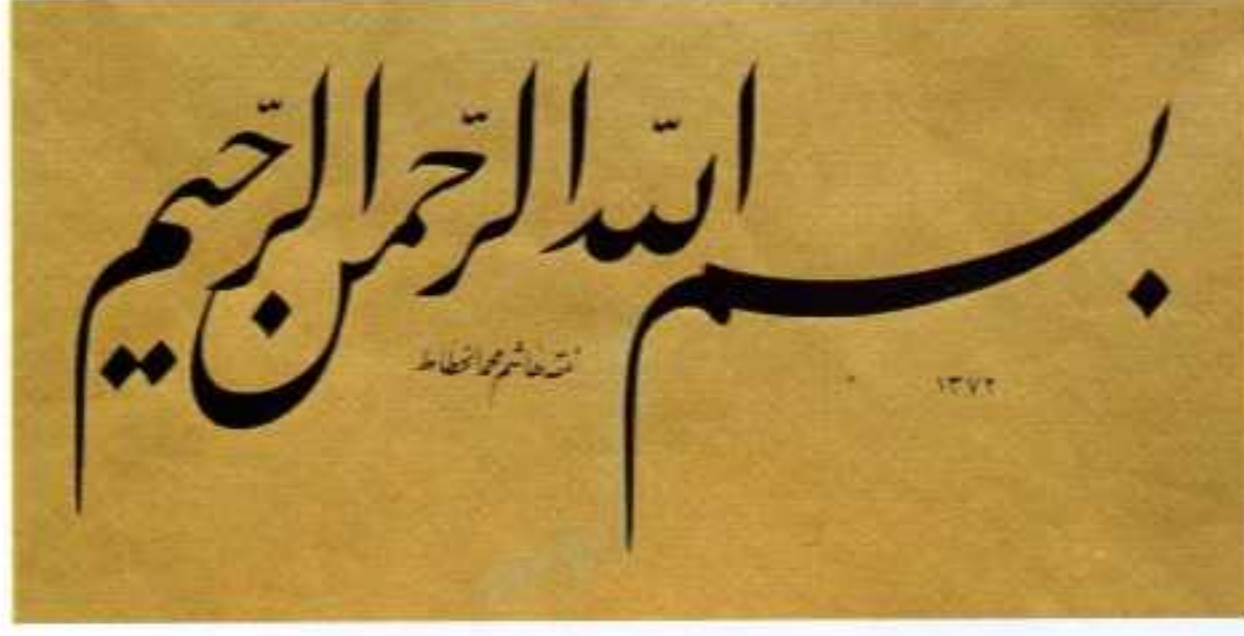 بسم الله الرحمن الرحيم
نمقه هاشم محمد الخطاط
١٣٧٢